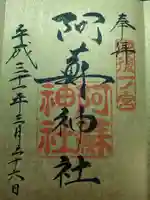 奉拝
肥後一の宮
阿蘇神社
阿蘇神社
平成三十一年三月二十六日